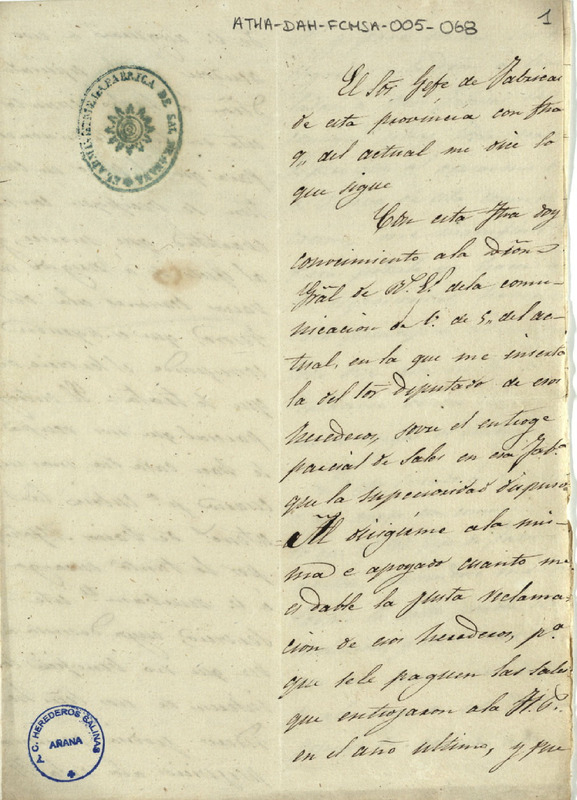 ATHA-DAH-FCMSA-005-068
1
FABRICA DE SAL DE AÑANA
El Sor. Gefe de Fabricas
de esta provincia con fha
9,, del actual me dice lo
que sigue
Con esta fha doy
conocimiento a la Dión
Gral de Rs. Es. de la comu-
nicacion de V. de 5,, del ac-
tual, en la que me inserta
la del Sor Diputado de esos
herederos, sovre el entroge
parcial de Sales en esa Fabca
que la superioridad dispuso
Al dirigirme a la mis-
ma e apoyado cuanto me
es dable la justa reclama-
cion de esos herederos, pa.
que se le paguen las sales
que entrojaron a la H. P.
en el año ultimo, y que
C. HEREDEROS SALINAS
AÑANA